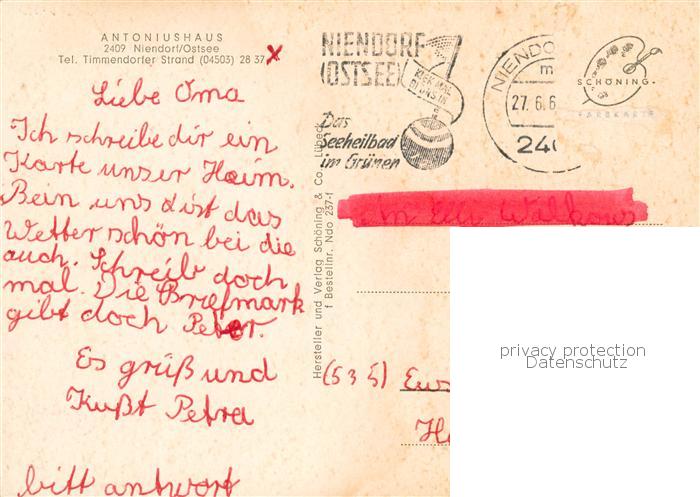 ANTONIUSHAUS
2409 Niendorf/Ostsee
Tel. Timmendorfer Strand (04503) 28 37
Liebe Oma
Ich schreibe dir ein
Karte unser Haim.
Bein uns dist das
Wetter schön bei die
auch. Schreib doch
mal. Die Briefmark
gibt doch Peter.
Es grüß und
Kußt Petra
bitt antwort
Hersteller und Verlag Schöning & Co., Lübeck
f Bestellnr. Ndo 237-f
NIENDORF
(OSTSEE)
Das
Seeheilbad
im Grünen
NIENDO
27.6.6
24
SCHÖNING
An
(535)
privacy protection
Datenschutz